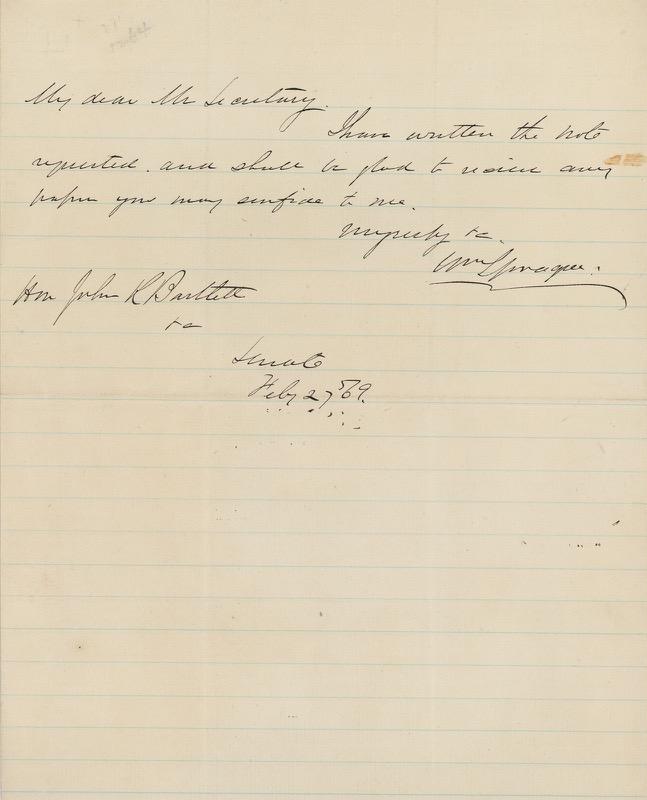 My dear Mr Secretary.
I have written the note
requested. and shall be glad to receive any
paper you may confide to me.
Respectfully &c.
Wm Sprague.
Hon John R Bartlett
&c
Senate
Feby 27th 69.